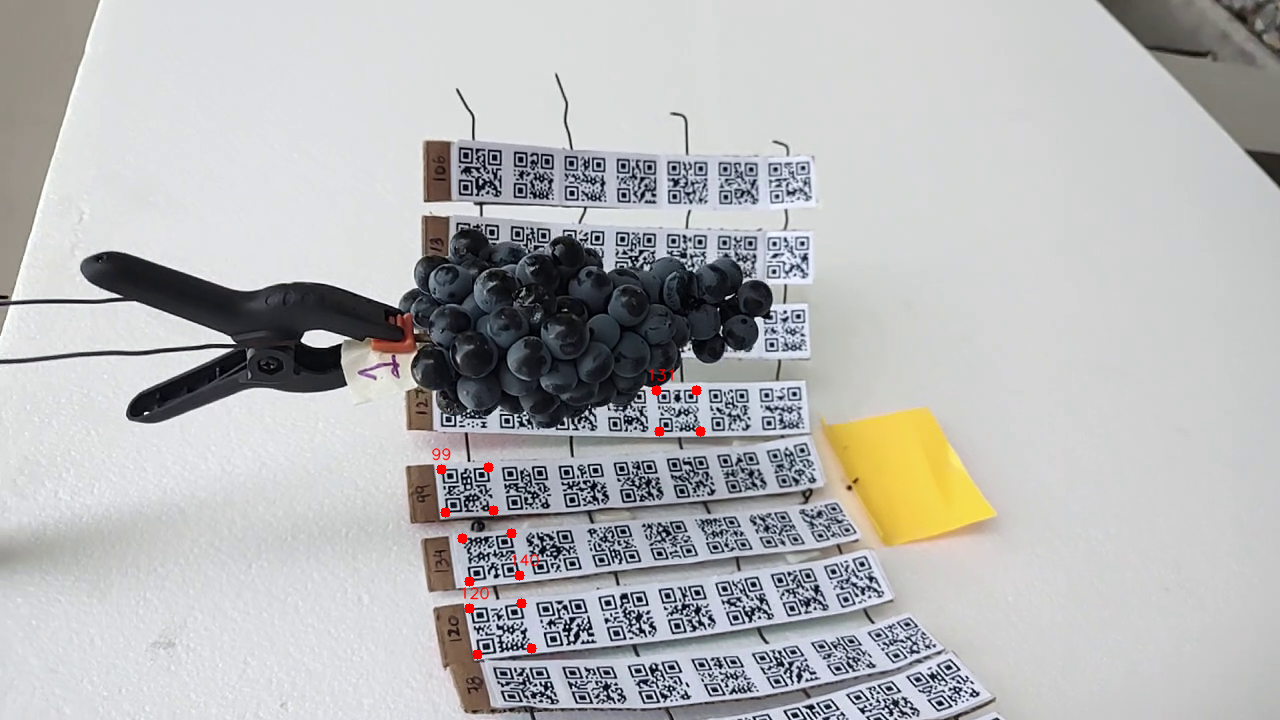 106
13
131
127
99
99
134
140
120
120
78